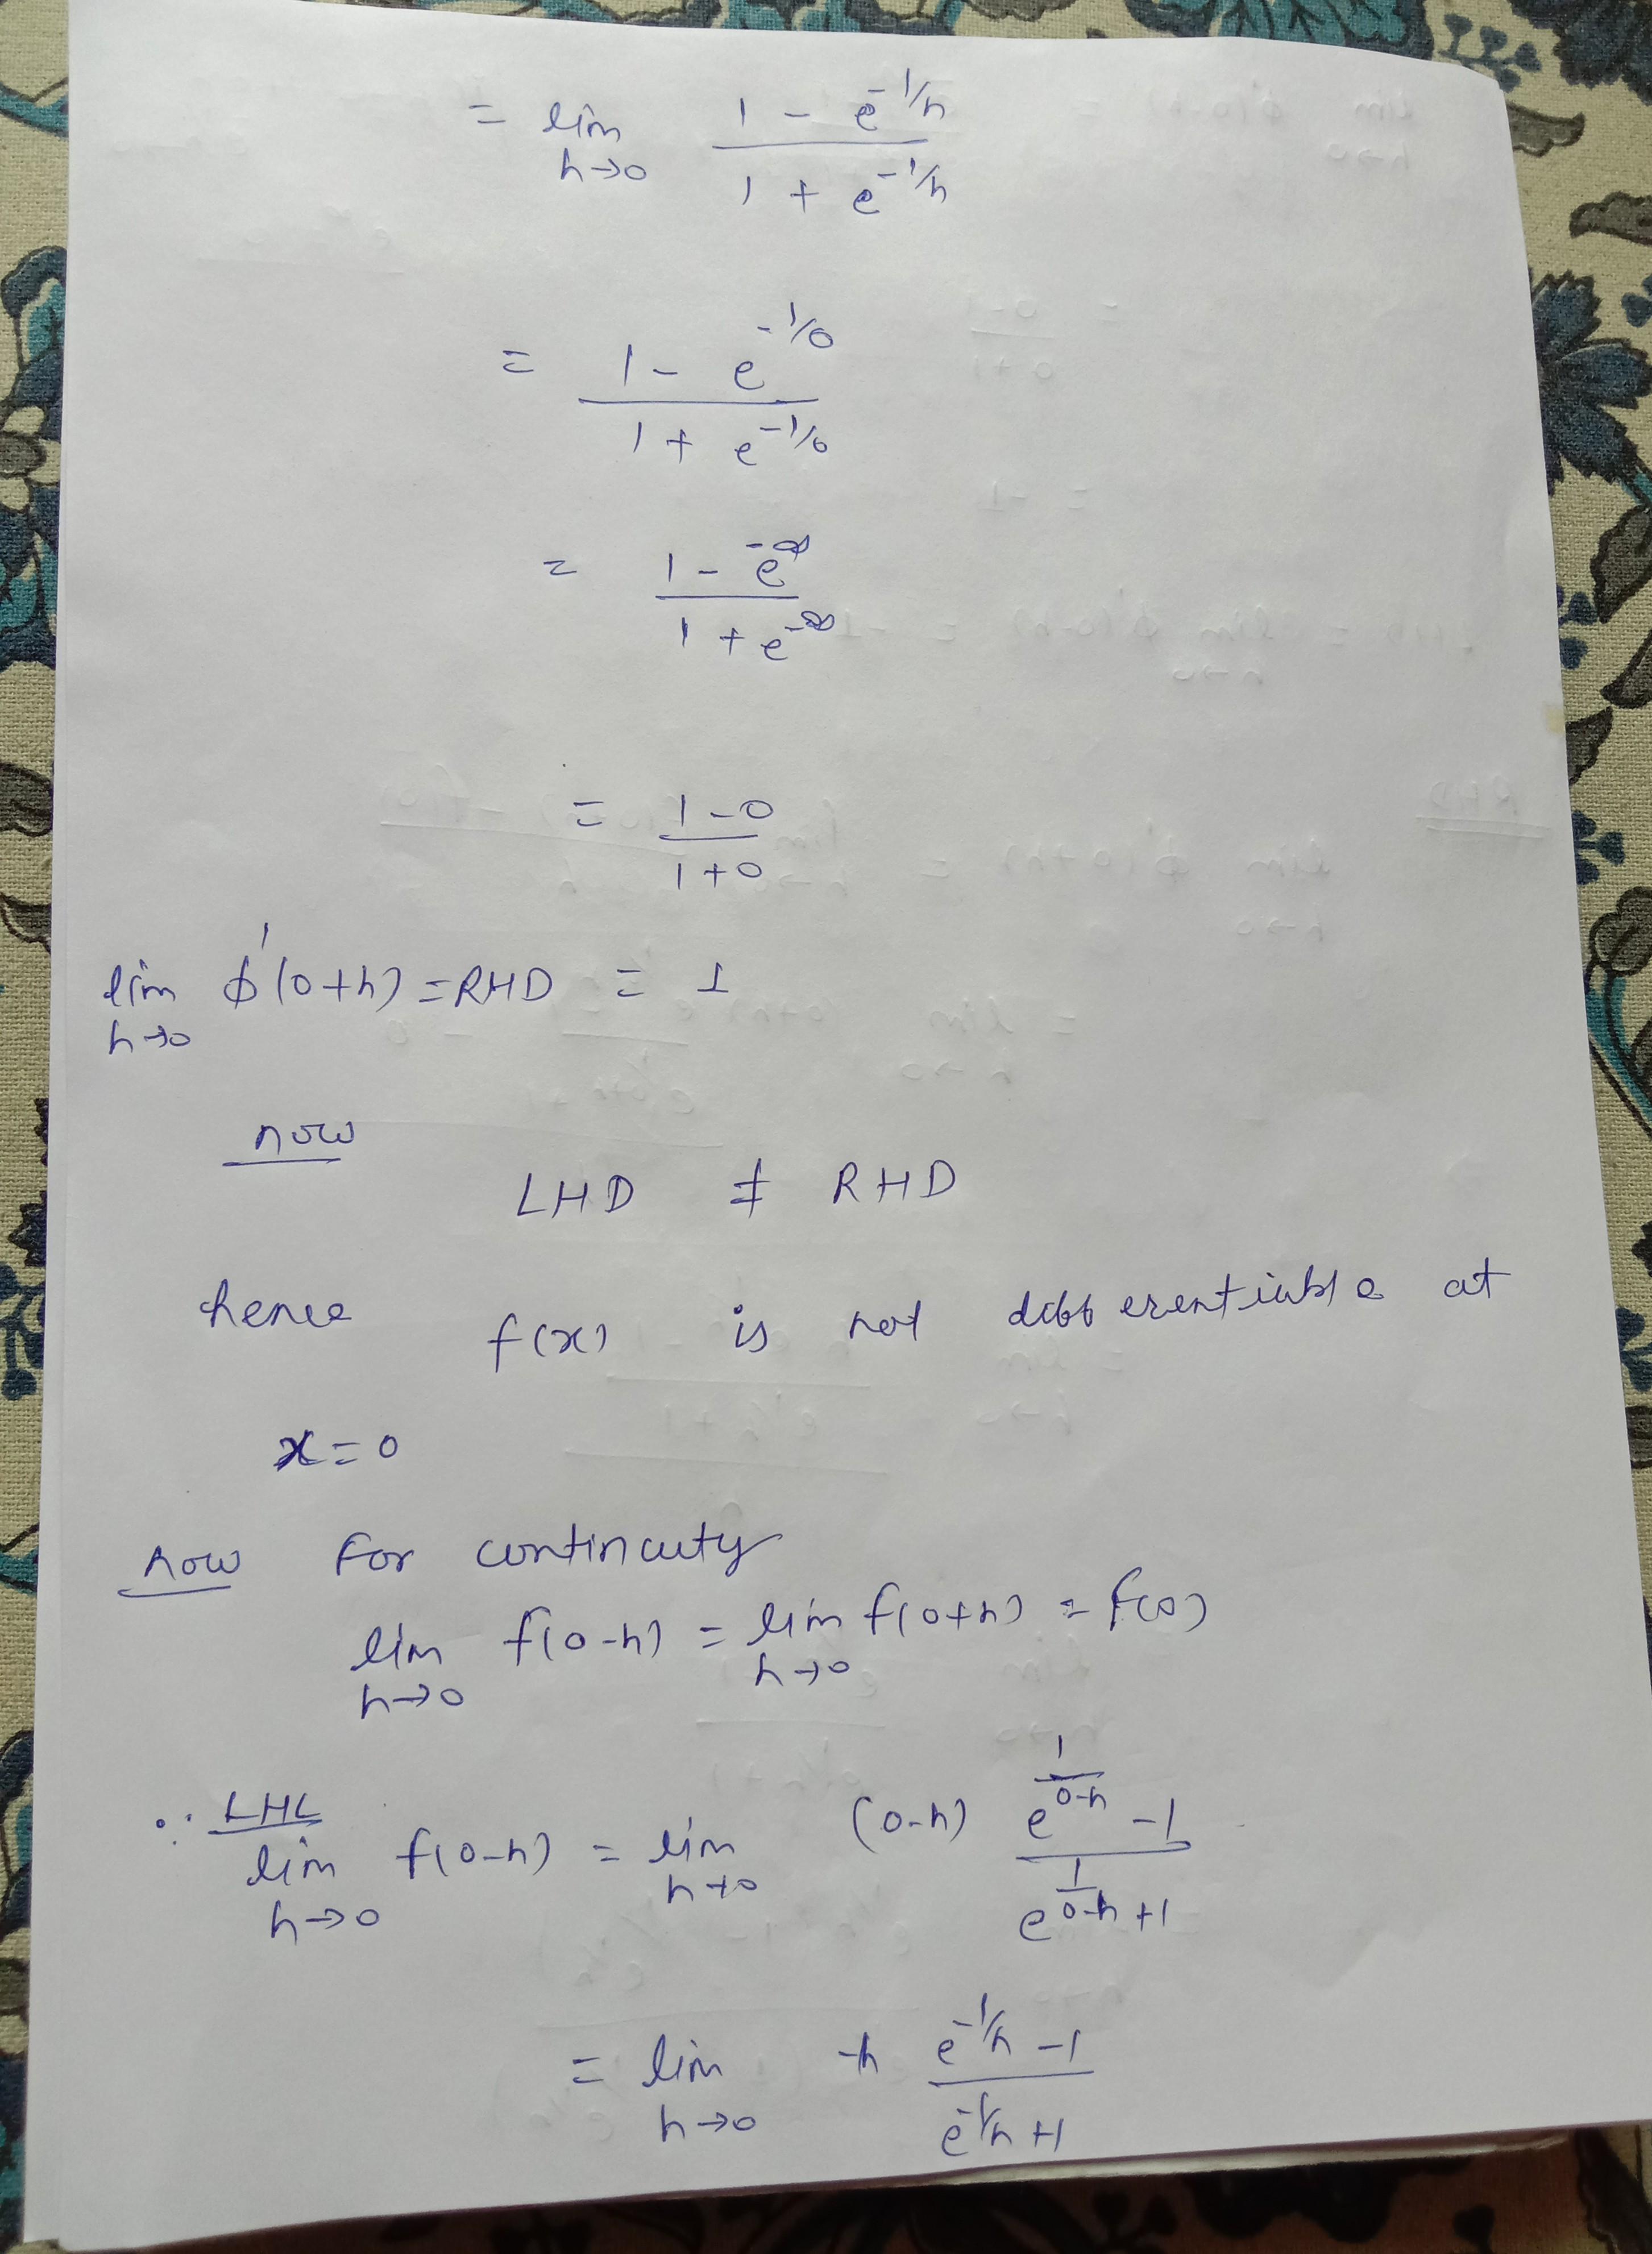 = lim_{h→0} (1 - e^{-1/h}) / (1 + e^{-1/h})
= (1 - e^{-1/0}) / (1 + e^{-1/0})
= (1 - e^{-∞}) / (1 + e^{-∞})
= (1-0) / (1+0)
lim_{h→0} ϕ'(0+h) = RHD = 1
now
LHD ≠ RHD
hence f(x) is not differentiable at
x=0
now For continuty
lim_{h→0} f(0-h) = lim_{h→0} f(0+h) = f(0)
∴ LHL
lim_{h→0} f(0-h) = lim_{h→0} (0-h) (e^{1/(0-h)} - 1) / (e^{1/(0-h)} + 1)
= lim_{h→0} -h (e^{-1/h} - 1) / (e^{-1/h} + 1)